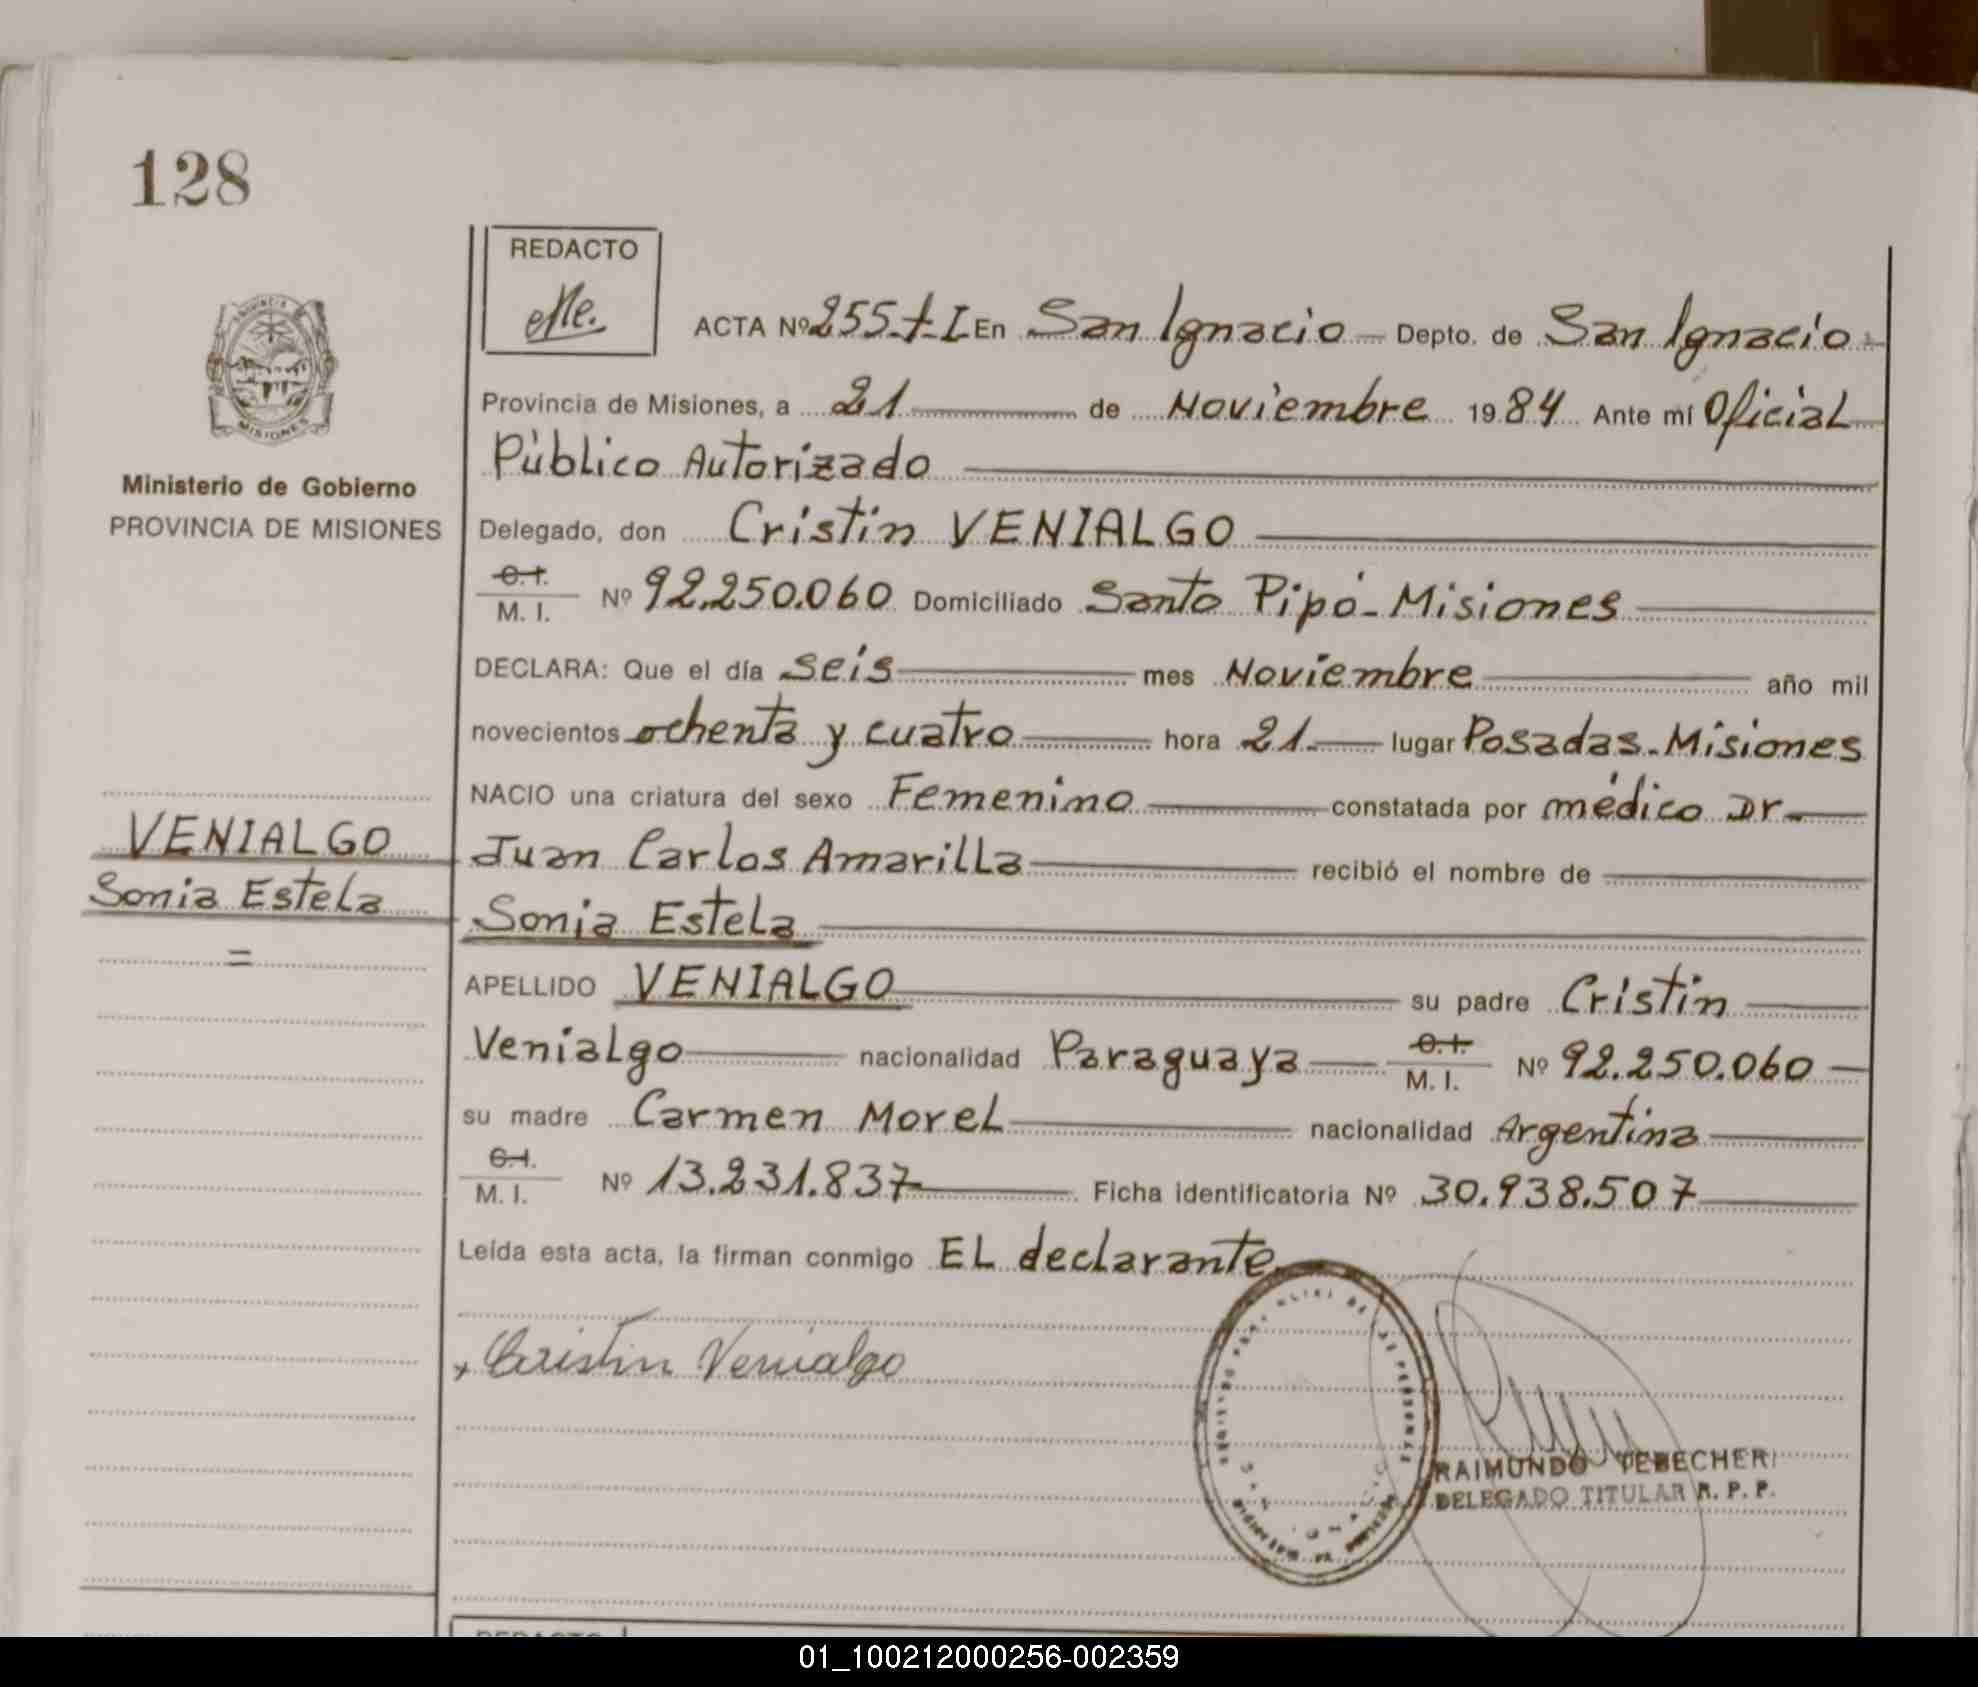 128
REDACTO
ACTA Nº 255-t-I En San Ignacio Depto. de San Ignacio
Provincia de Misiones, a 21 de Noviembre 1984 Ante mí Oficial
Público Autorizado
PROVINCIA
MISIONES
Ministerio de Gobierno
PROVINCIA DE MISIONES
Delegado, don Cristin VENIALGO
C.I.
M. I. Nº 92.250.060 Domiciliado Santo Pipó - Misiones
DECLARA: Que el día seis mes Noviembre año mil
novecientos ochenta y cuatro hora 21. lugar Posadas - Misiones
NACIO una criatura del sexo Femenino constatada por médico Dr
Juan Carlos Amarilla recibió el nombre de
Sonia Estela
VENIALGO
Sonia Estela
=
APELLIDO VENIALGO su padre Cristin
Venialgo nacionalidad Paraguaya C.I. M. I. Nº 92.250.060
su madre Carmen Morel nacionalidad Argentina
C.I.
M. I. Nº 13.231.837 Ficha identificatoria Nº 30.938.507
Leída esta acta, la firman conmigo El declarante
x Cristin Venialgo
RAIMUNDO TEBECHERI
DELEGADO TITULAR R. P. P.
REDACTO
01_100212000256-002359